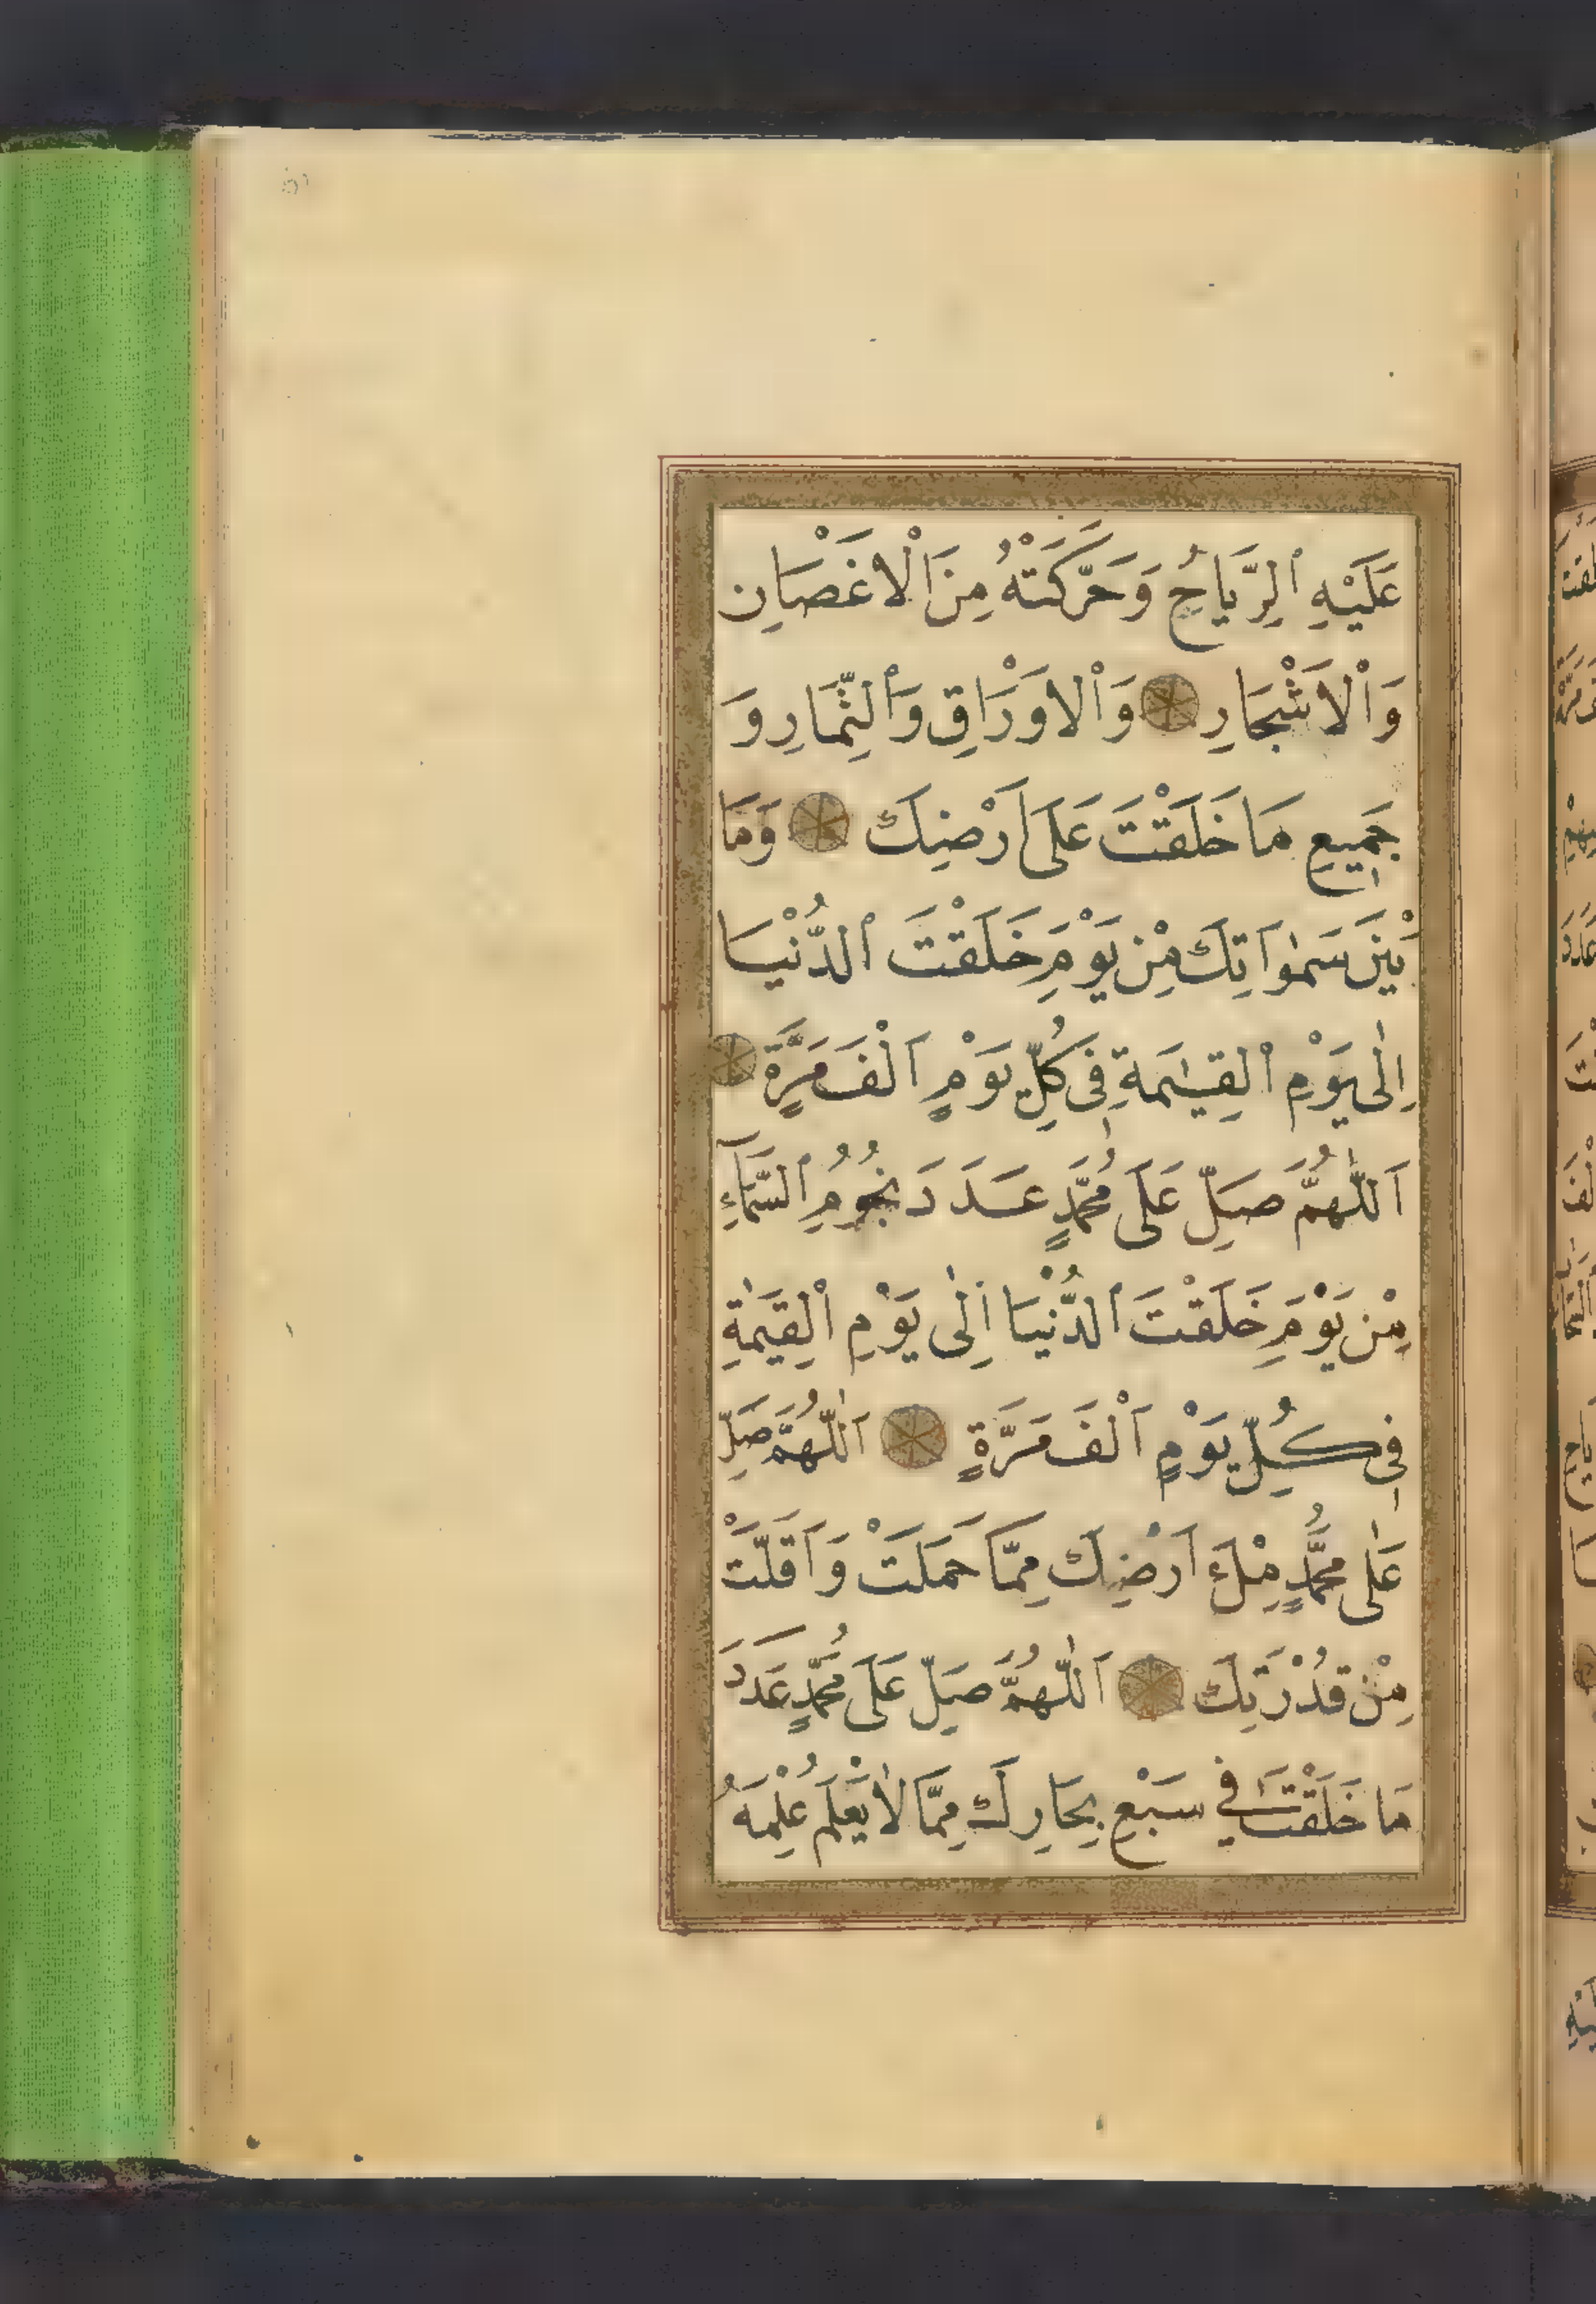 عَلَيْهِ الرِّيَاحُ وَحَرَّكَتْهُ مِنَ الْاَغْصَانِ
وَالْاَشْجَارِ وَالْاَوْرَاقِ وَالثِّمَارِ وَ
جَمِيعِ مَا خَلَقْتَ عَلَى اَرْضِكَ وَمَا
بَيْنَ سَمٰوَاتِكَ مِنْ يَوْمِ خَلَقْتَ الدُّنْيَا
اِلٰى يَوْمِ الْقِيٰمَةِ فِى كُلِّ يَوْمٍ اَلْفَ مَرَّةٍ
اَللّٰهُمَّ صَلِّ عَلَى مُحَمَّدٍ عَدَدَ نُجُومِ السَّمَآءِ
مِنْ يَوْمِ خَلَقْتَ الدُّنْيَا اِلٰى يَوْمِ الْقِيٰمَةِ
فِى كُلِّ يَوْمٍ اَلْفَ مَرَّةٍ اَللّٰهُمَّ صَلِّ
عَلٰى مُحَمَّدٍ مِلْءَ اَرْضِكَ مِمَّا حَمَلَتْ وَاَقَلَّتْ
مِنْ قُدْرَتِكَ اَللّٰهُمَّ صَلِّ عَلَى مُحَمَّدٍ عَدَدَ
مَا خَلَقْتَ فِي سَبْعِ بِحَارِكَ مِمَّا لَا يَعْلَمُ عِلْمَهُ